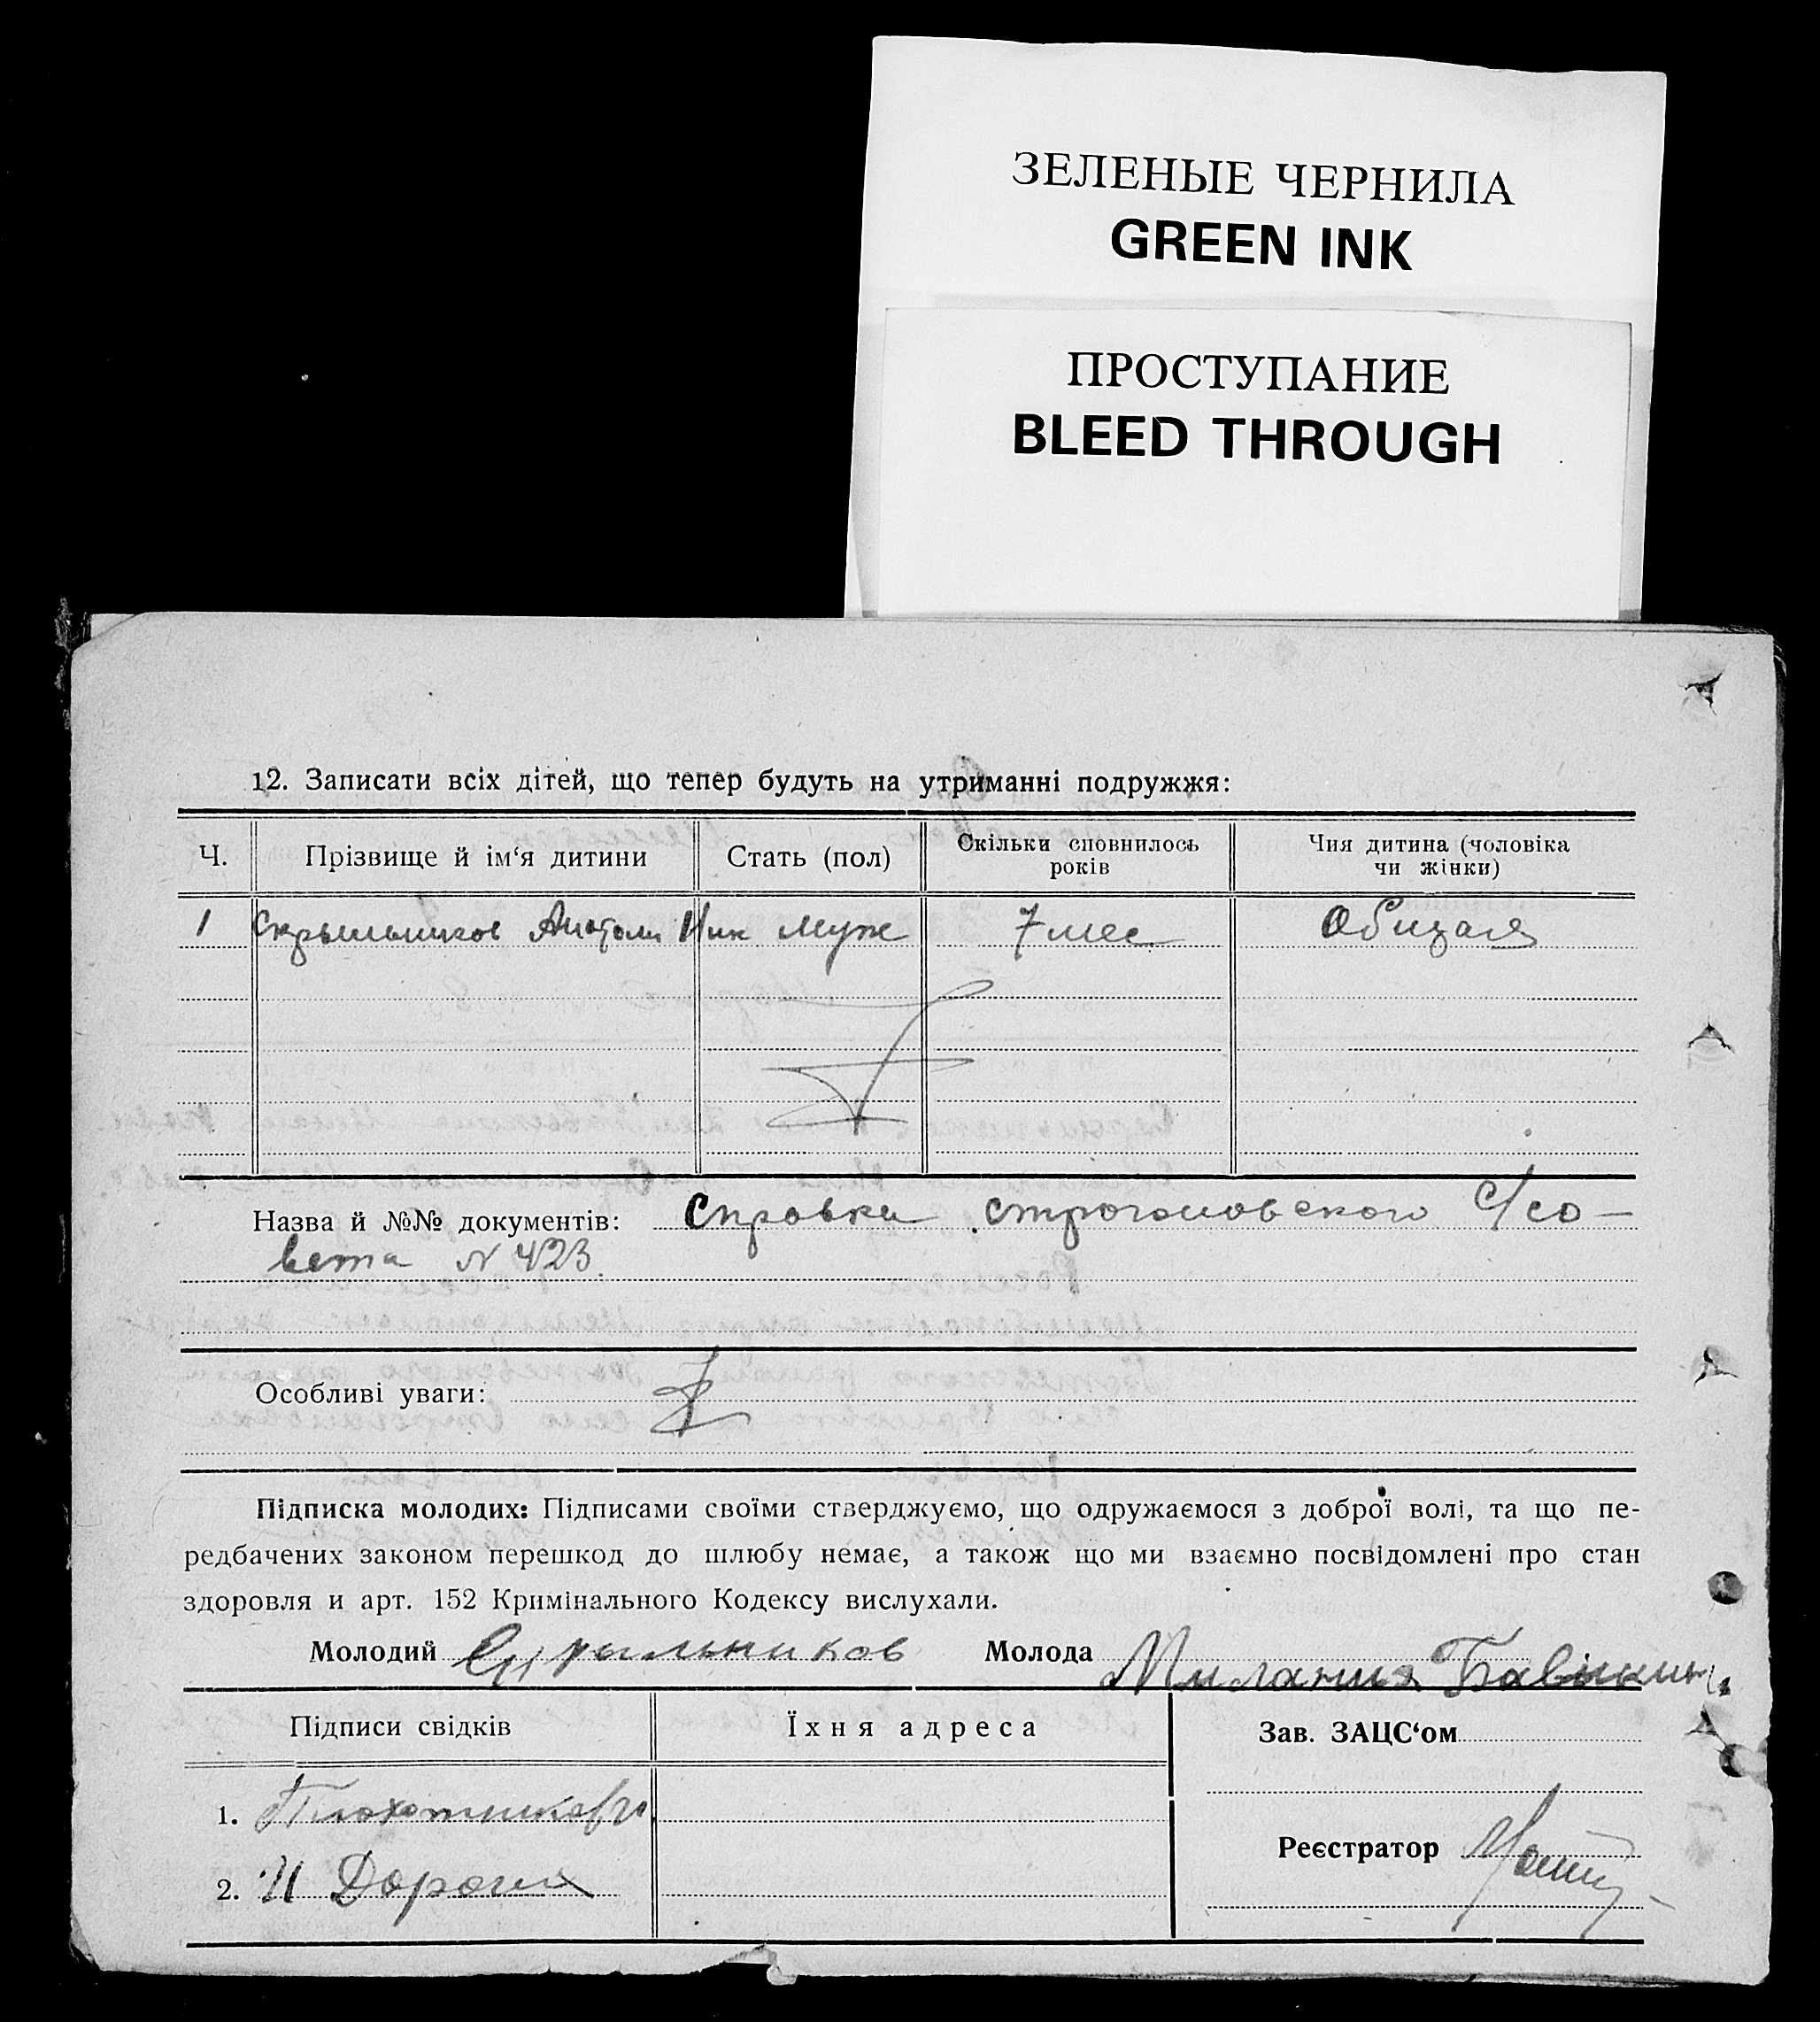 ЗЕЛЕНЫЕ ЧЕРНИЛА
GREEN INK
ПРОСТУПАНИЕ
BLEED THROUGH
12. Записати всіх дітей, що тепер будуть на утриманні подружжя:
Ч. Прізвище й ім‘я дитини Стать (пол) Скільки сповнилось років Чия дитина (чоловіка чи жінки)
1 Скрыльников Анатоли Ник муж 7 мес Общая
Назва й №№ документів: Справка строгоновского с/со–
вета N 423
Особливі уваги:
Підписка молодих: Підписами своїми стверджуємо, що одружаємося з доброї волі, та що пе-
редбачених законом перешкод до шлюбу немає, а також що ми взаємно посвідомлені про стан
здоровля и арт. 152 Кримінального Кодексу вислухали.
Молодий Скрыльников Молода Милания Бавикин
Підписи свідків Їхня адреса Зав. ЗАЦС‘ом
1.
Реєстратор
2. И